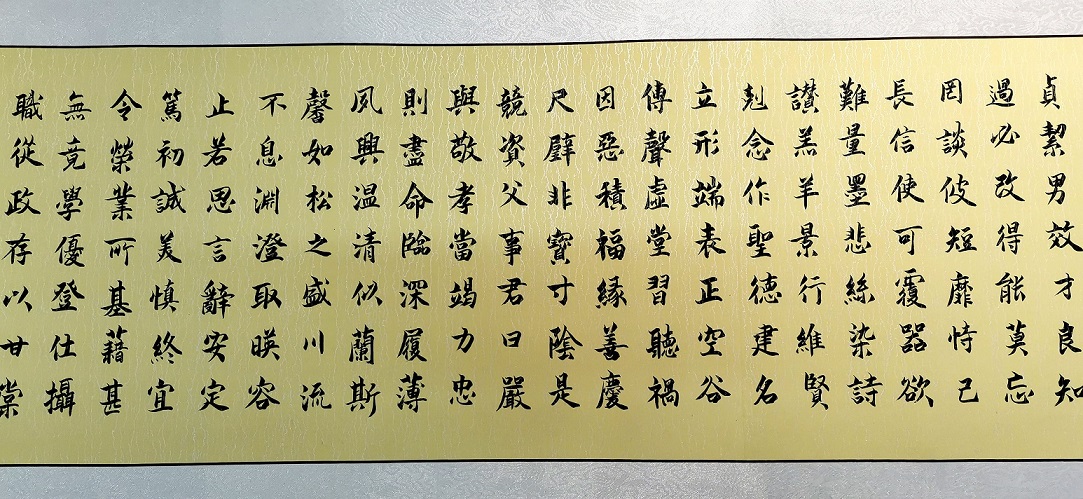 貞絜男效才良知
過必改得能莫忘
罔談彼短靡恃己
長信使可覆器欲
難量墨悲絲染詩
讚羔羊景行維賢
剋念作聖德建名
立形端表正空谷
傳聲虛堂習聽禍
因惡積福緣善慶
尺璧非寶寸陰是
競資父事君曰嚴
與敬孝當竭力忠
則盡命臨深履薄
夙興温清似蘭斯
馨如松之盛川流
不息淵澄取暎容
止若思言辭安定
篤初誠美慎終宜
令榮業所基藉甚
無竟學優登仕攝
職從政存以甘棠